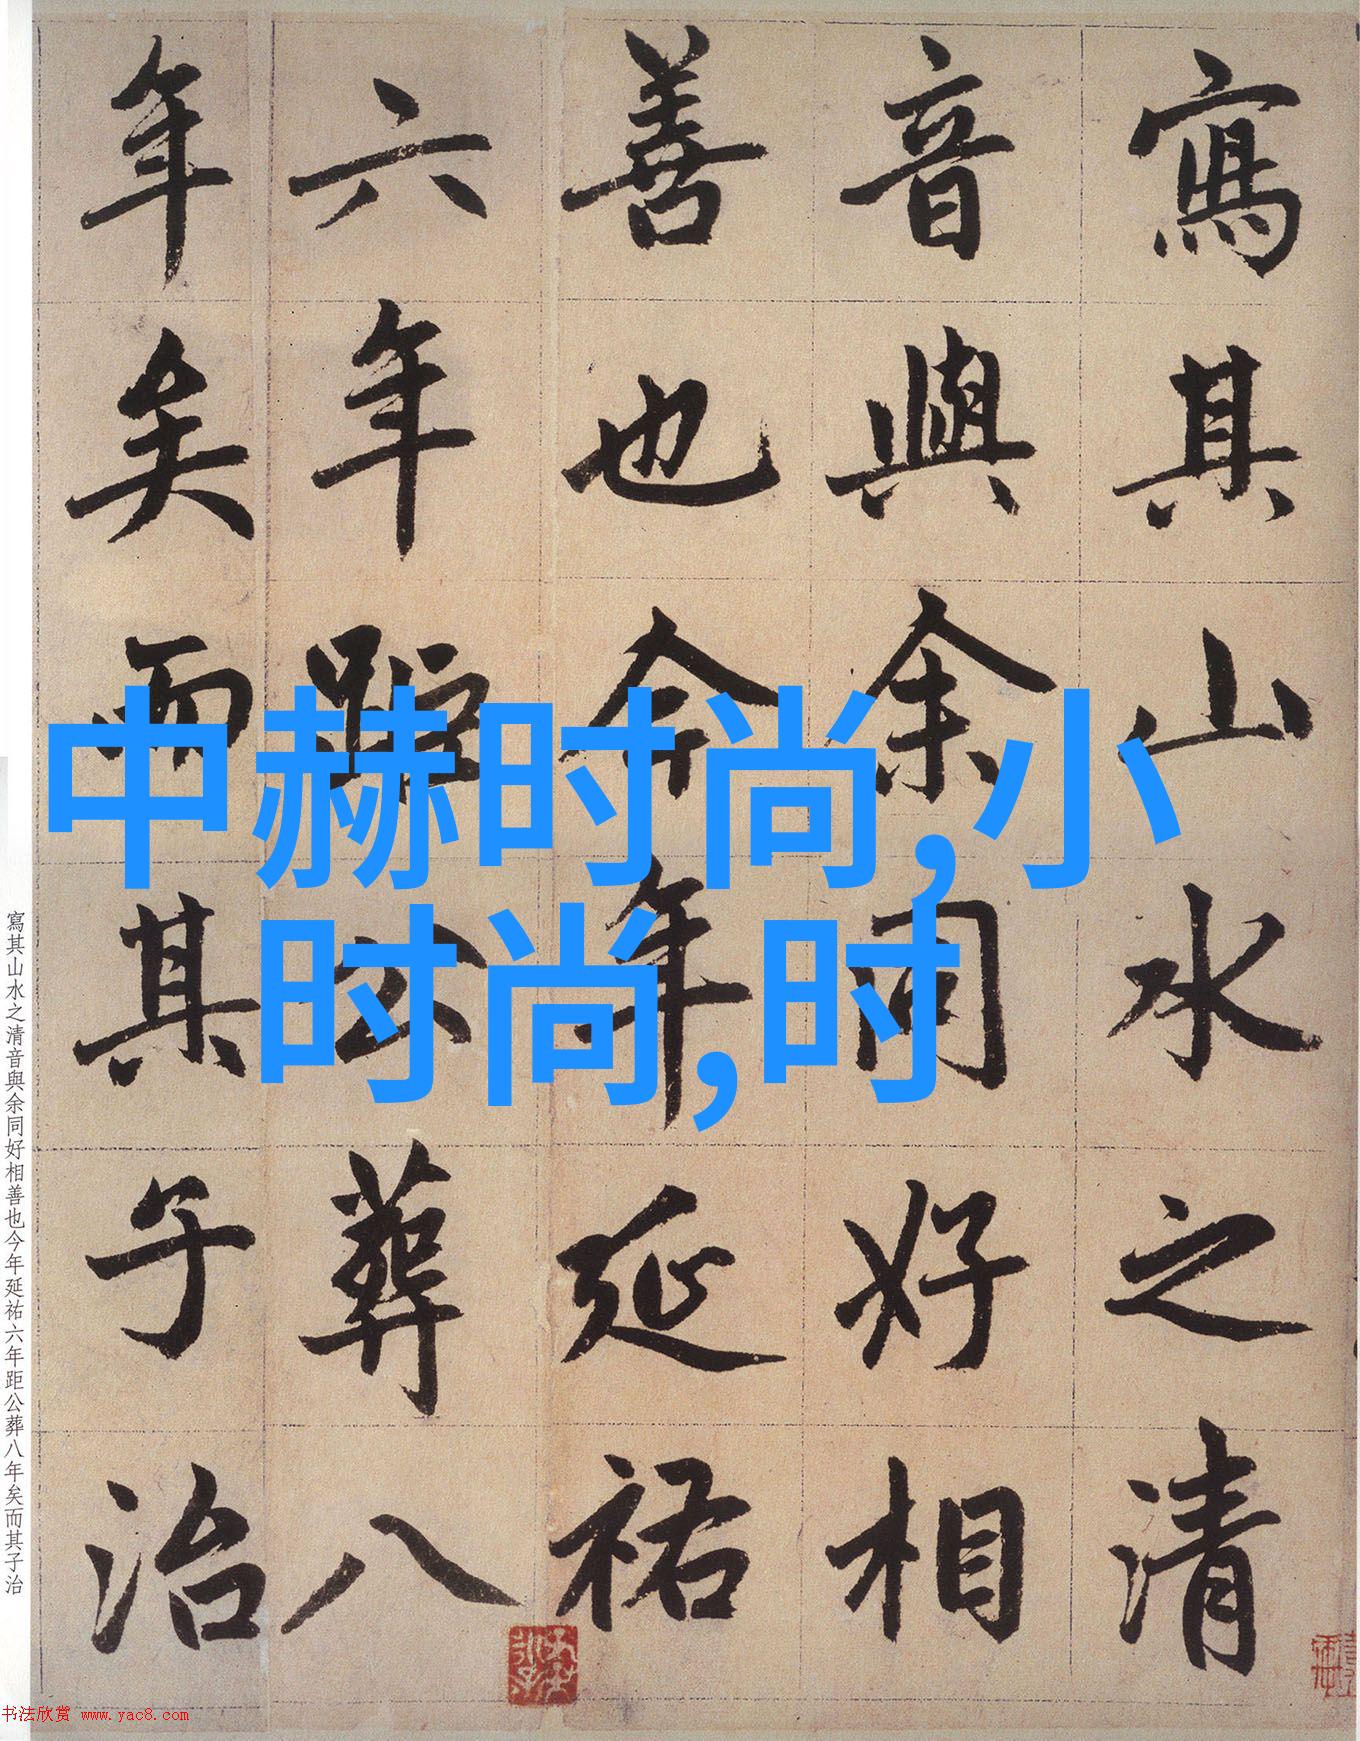 寫其山水之清
音與余同好相
善也今年延祐
六年距公葬八
年矣而其子治
中赫时尚,小
时尚,时
寫其山水之清音與余同好相善也今年延祐六年距公葬八年矣而其子治
书法欣赏 www.yac8.com